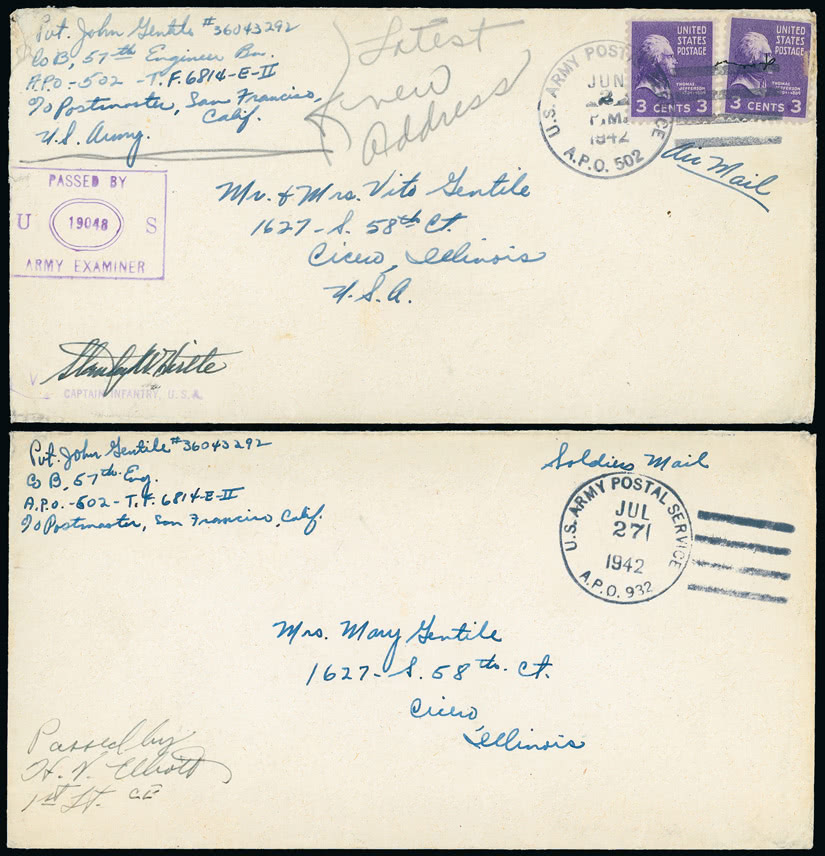 Pvt. John Gentile #36043292
Co B, 57th Engineer Bn.
A.P.O.-502-T.F. 6814-E-II
c/o Postmaster, San Francisco,
Calif.
U.S. Army.
Latest
new
address
UNITED
STATES
POSTAGE
THOMAS
JEFFERSON
3 CENTS 3
UNITED
STATES
POSTAGE
THOMAS
JEFFERSON
3 CENTS 3
U.S. ARMY POSTAL SERVICE
JUN
P.M.
1942
A.P.O. 502
Air Mail
PASSED BY
U 19048 S
ARMY EXAMINER
Mr. & Mrs. Vito Gentile
1627-S. 58th Ct.
Cicero, Illinois
U.S.A.
CAPTAIN INFANTRY, U.S.A.
Pvt. John Gentile #36043292
Co B, 57th Eng.
A.P.O.-502-T.F. 6814-E-II
c/o Postmaster, San Francisco, Calif.
Soldiers Mail
U.S. ARMY POSTAL SERVICE
JUL
271
1942
A.P.O. 932
Mrs. Mary Gentile
1627-S. 58th Ct.
Cicero,
Illinois
Passed by
H. V. Elliott
1st Lt. CE